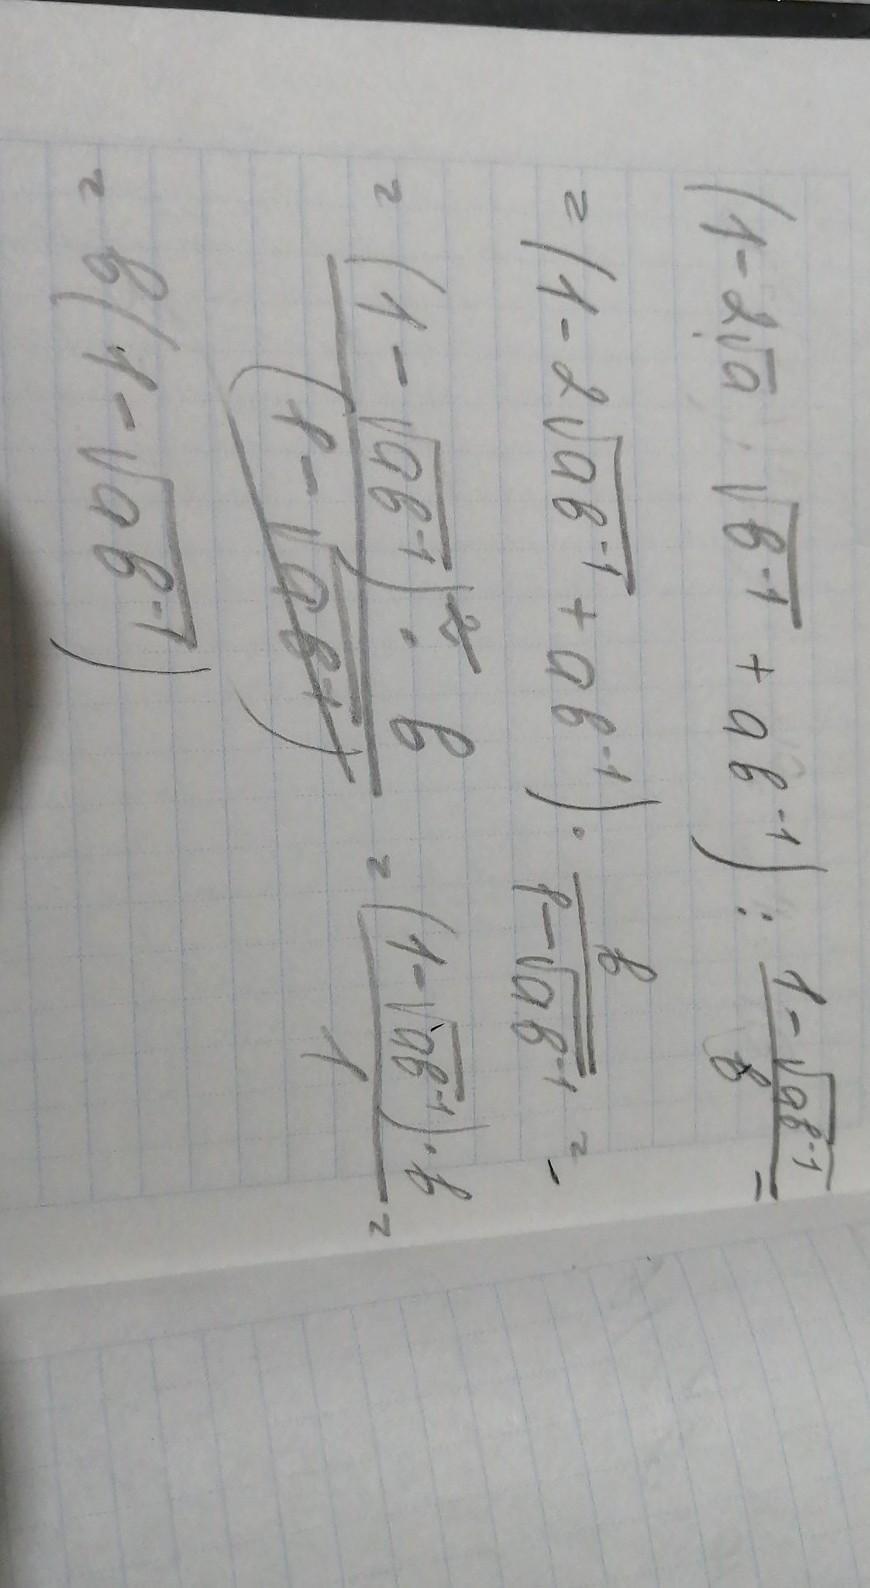 (1 - 2√a · √b⁻¹ + ab⁻¹) : (1 - √ab⁻¹)/b =
= (1 - 2√ab⁻¹ + ab⁻¹) · b/(1 - √ab⁻¹) =
= (1 - √ab⁻¹)² · b/(1 - √ab⁻¹) = (1 - √ab⁻¹) · b/1 =
= b(1 - √ab⁻¹)